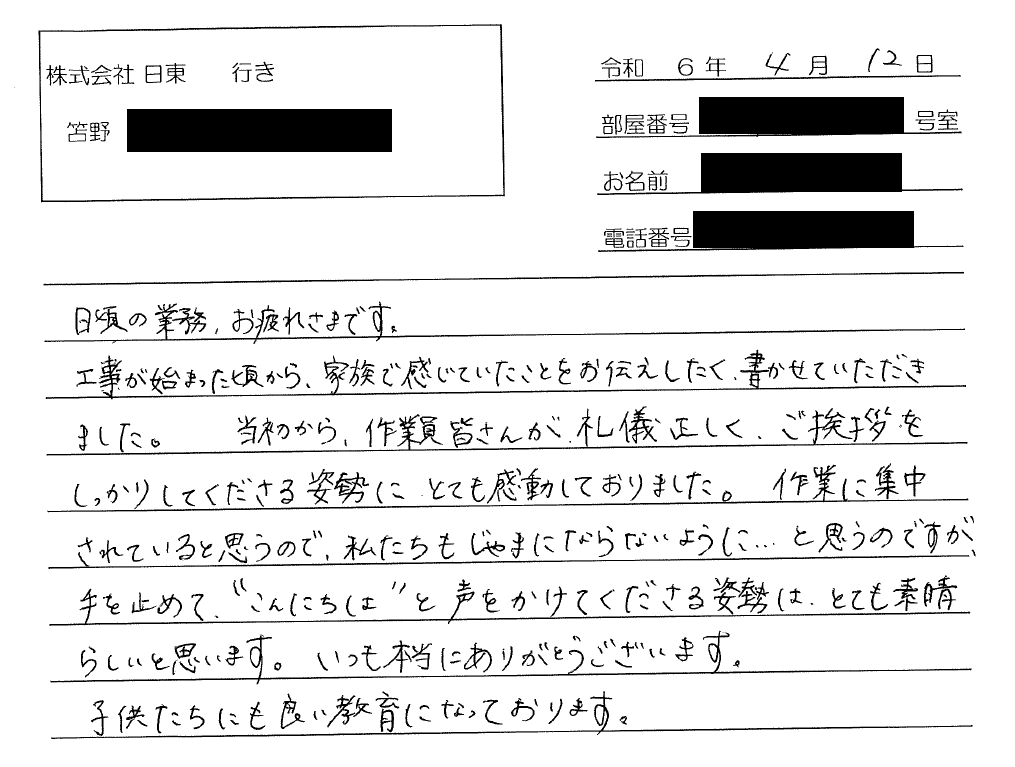 株式会社 日東 行き
笘野
令和 6年 4月 12日
部屋番号 号室
お名前
電話番号
日頃の業務、お疲れさまです。
工事が始まった頃から、家族で感じていたことをお伝えしたく、書かせていただき
ました。 当初から、作業員皆さんが、礼儀正しく、ご挨拶を
しっかりしてくださる姿勢に とても感動しておりました。 作業に集中
されていると思うので、私たちもじゃまにならないように…と思うのですが、
手を止めて、“こんにちは”と声をかけてくださる姿勢は、とても素晴
らしいと思います。 いつも本当にありがとうございます。
子供たちにも良い教育になっております。